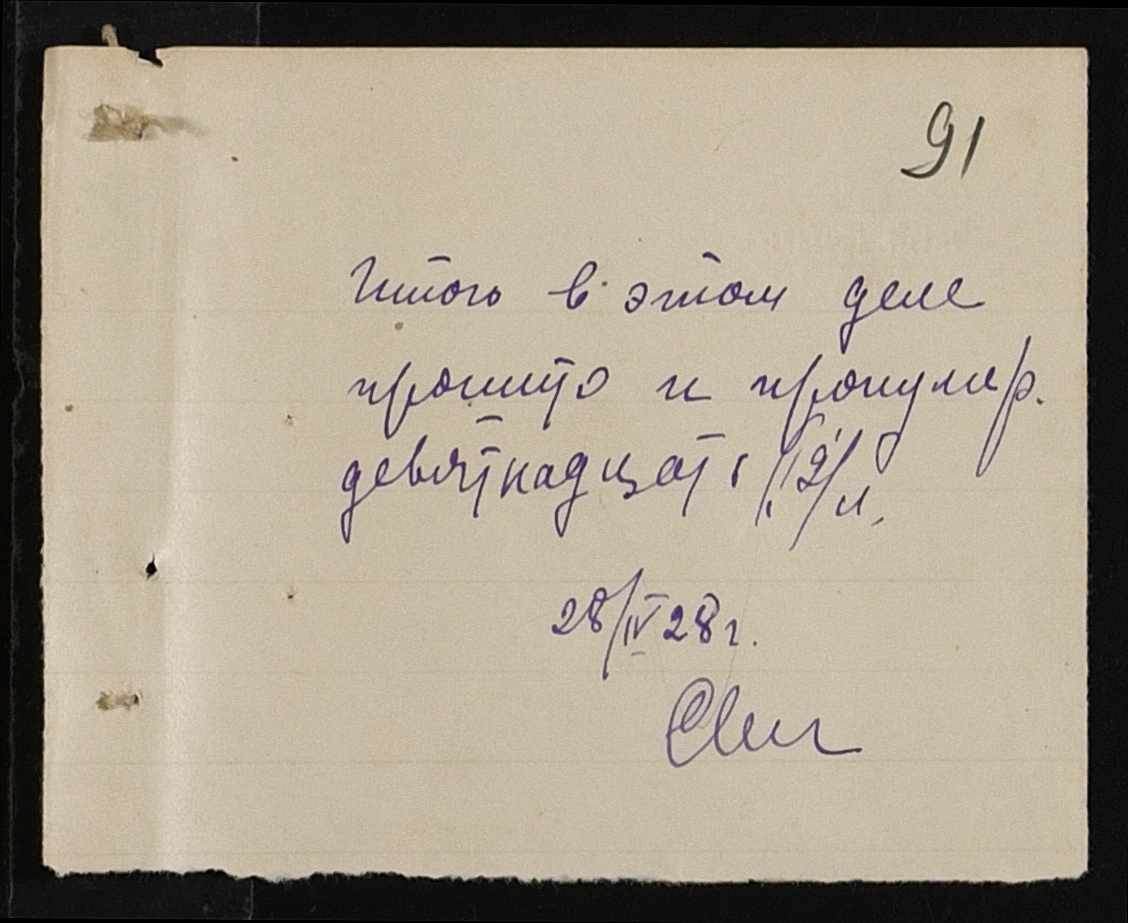 91
Итого в этом деле
прошито и пронумер.
девятнадцать /19/ л.
28/IV 28 г.